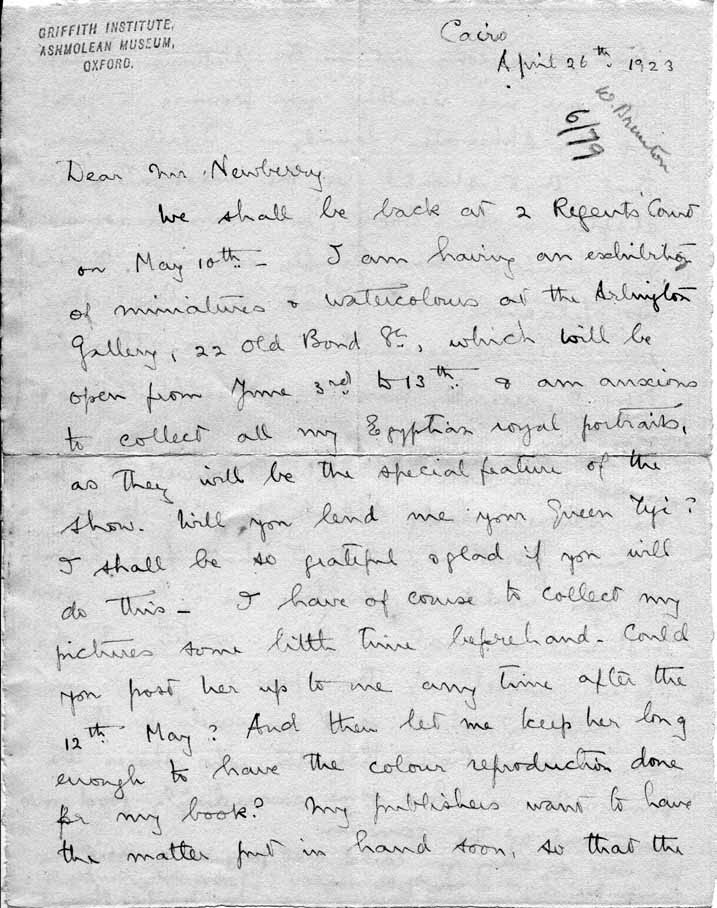 GRIFFITH INSTITUTE,
ASHMOLEAN MUSEUM,
OXFORD.
Cairo
April 26th 1923
W. Brunton
6/79
Dear Mr. Newberry
We shall be back at 2 Regents' Court
on May 10th – I am having an exhibition
of miniatures & watercolours at the Arlington
Gallery, 22 Old Bond St, which will be
open from June 3rd to 13th & am anxious
to collect all my Egyptian royal portraits,
as they will be the special feature of the
show. Will you lend me your Queen Tyi?
I shall be so grateful & glad if you will
do this – I have of course to collect my
pictures some little time beforehand. Could
you post her up to me any time after the
12th May? And then let me keep her long
enough to have the colour reproduction done
for my book? My publishers want to have
the matter put in hand soon, so that the